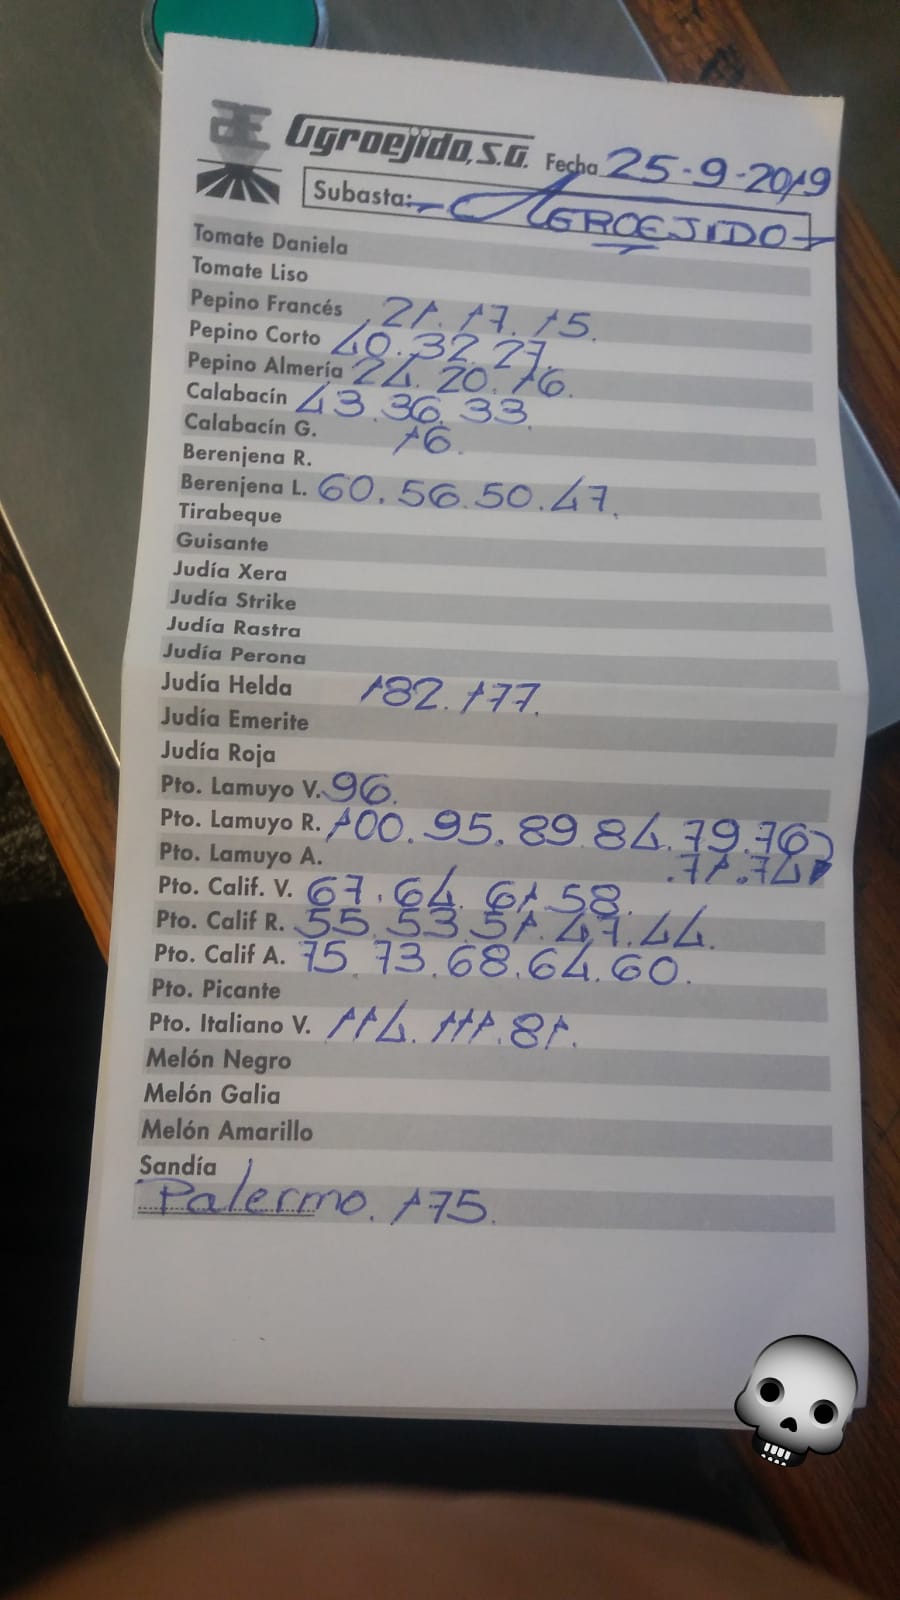 Agroejido, S.A. Fecha 25-9-2019
Subasta: AGROEJIDO
Tomate Daniela
Tomate Liso
Pepino Francés 21. 17. 15.
Pepino Corto 40. 32. 27
Pepino Almería 24. 20. 16.
Calabacín 43. 36. 33.
Calabacín G. 16.
Berenjena R.
Berenjena L. 60. 56. 50. 47.
Tirabeque
Guisante
Judía Xera
Judía Strike
Judía Rastra
Judía Perona
Judía Helda 182. 177.
Judía Emerite
Judía Roja
Pto. Lamuyo V. 96.
Pto. Lamuyo R. 100. 95. 89. 84. 79. 76
Pto. Lamuyo A. .71. 74
Pto. Calif. V. 67. 64. 61. 58.
Pto. Calif R. 55. 53. 51. 47. 44.
Pto. Calif A. 75. 73. 68. 64. 60.
Pto. Picante
Pto. Italiano V. 114. 111. 81.
Melón Negro
Melón Galia
Melón Amarillo
Sandía
Palermo. 175.